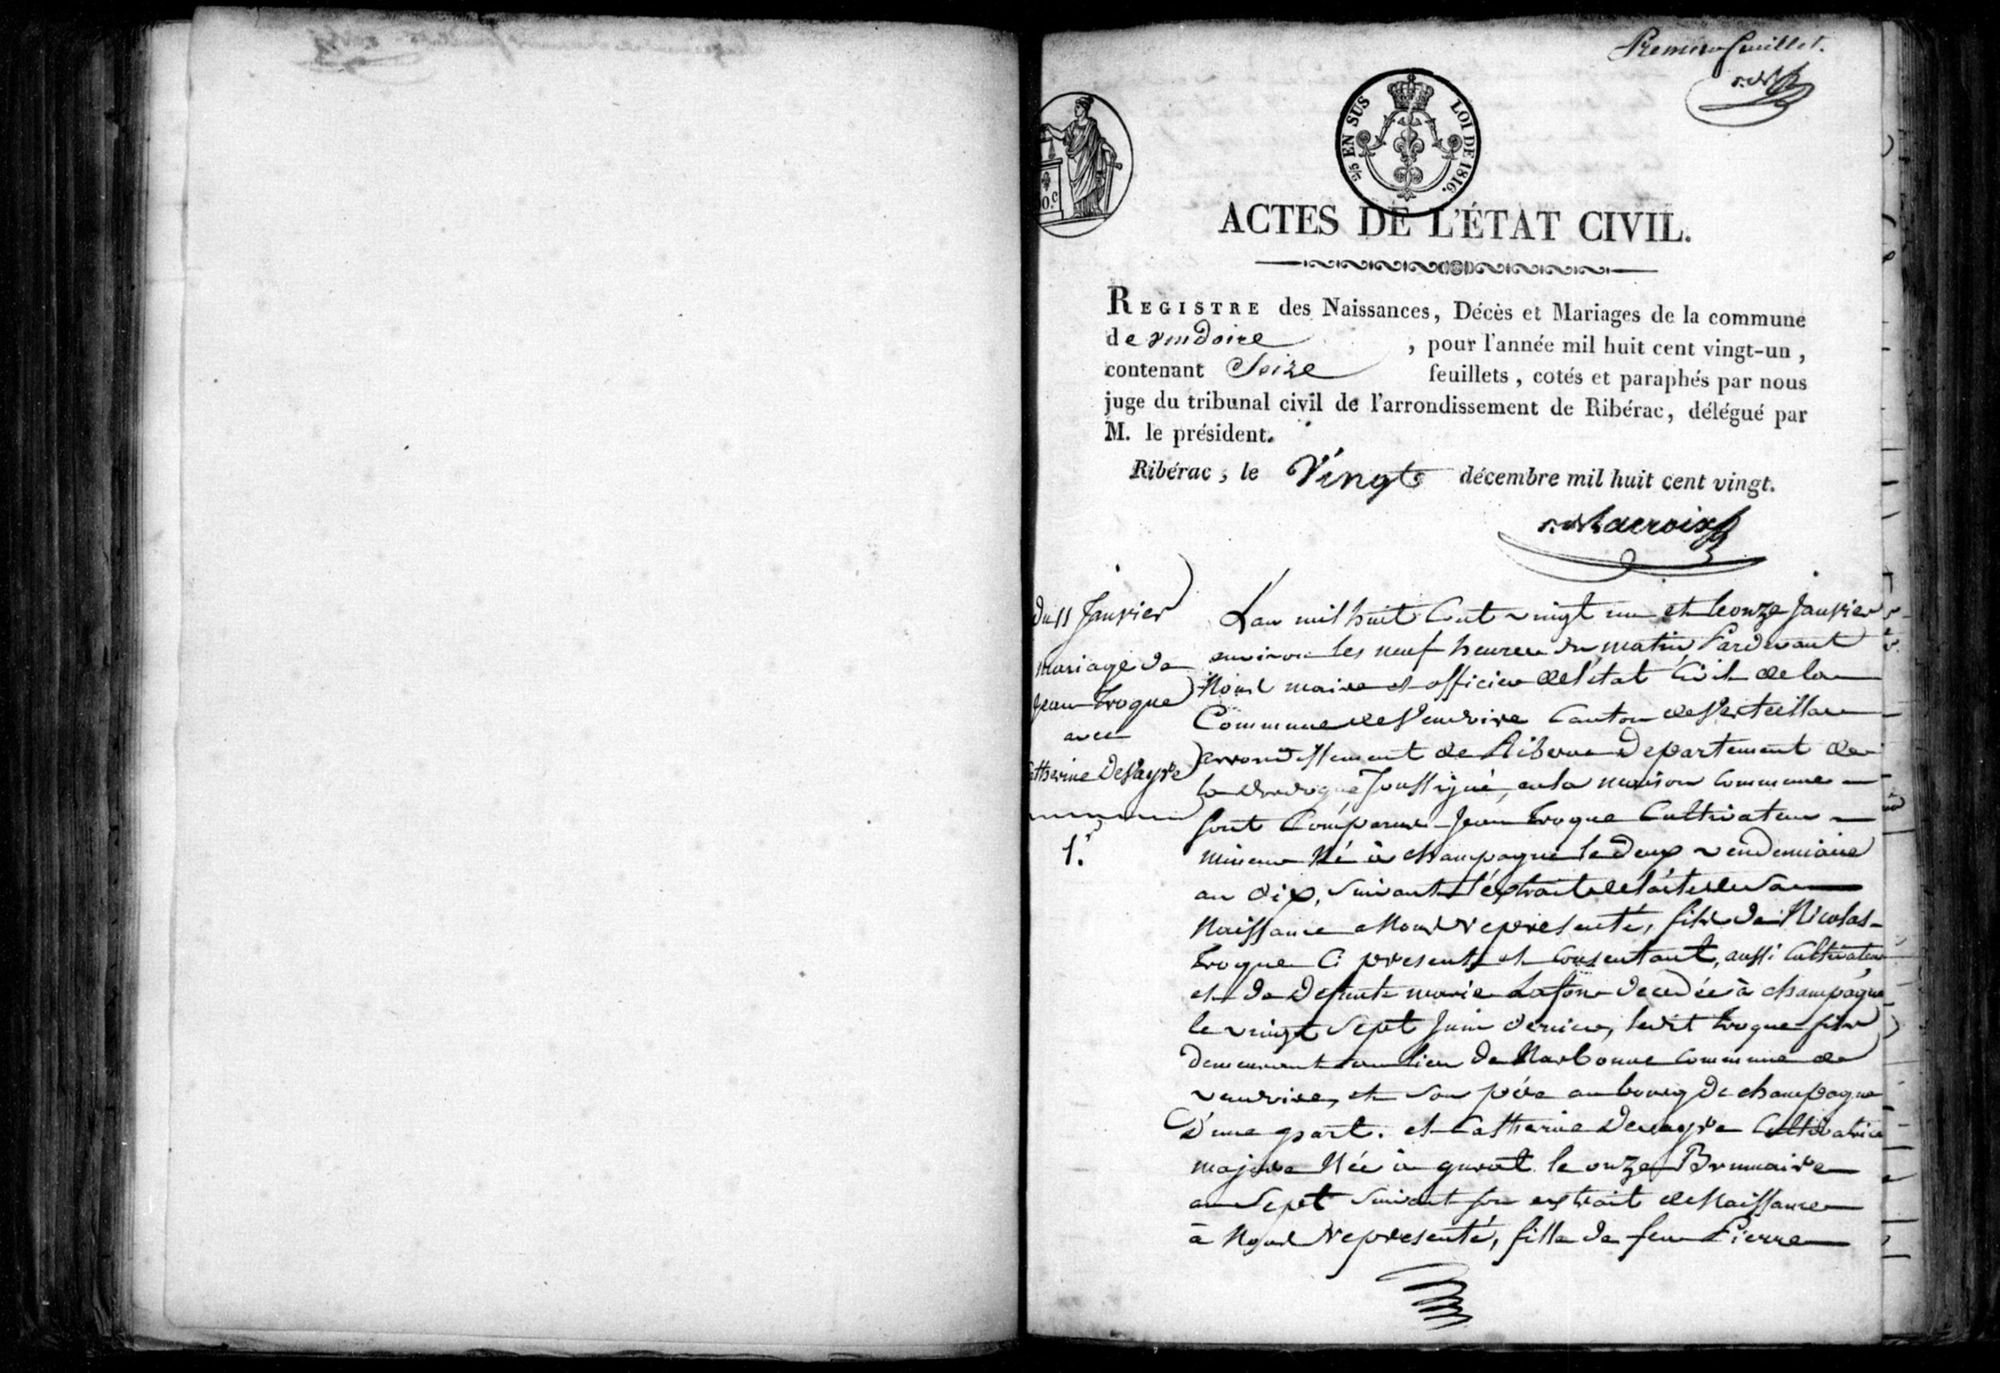 Premier feuillet.
2/5 EN SUS LOI DE 1816.
0.c
ACTES DE L'ÉTAT CIVIL.
REGISTRE des Naissances, Décès et Mariages de la commune
de vendoire , pour l'année mil huit cent vingt-un ,
contenant Seize feuillets , cotés et paraphés par nous
juge du tribunal civil de l'arrondissement de Ribérac, délégué par
M. le président.
Ribérac , le Vingt décembre mil huit cent vingt.
Lacroix
Du 11 Janvier
mariage de
Jean Troque
avec
Catherine Desayre
1.r
L'an mil huit Cent vingt un et le onze Janvier
environ les neuf heures du matin Pardevant
Nous maire et officier de l'état Civil de la
Commune de Vendoire Canton de Verteillac
arrondissement de Riberac Departement de
la Dordogne Soussigné, en la maison commune
sont Comparus Jean Troque Cultivateur
mineur Né à champagne le deux vendemiaire
an dix, suivant l'extrait de l'acte de sa
Naissance a Nous representé, fils de Nicolas
Troque Ci present et consentant, aussi Cultivateur
et de Defunte marie Lafon decedée à champagne
le vingt Sept Juin dernier, ledit Troque fils
demeurant au lieu de Narbonne commune de
vendoire, et son père au bourg de champagne
D'une part. et Catherine Desayre Cultivatrice
majeure Née à gurat le onze Brumaire
an Sept suivant son extrait de Naissance
à Nous representé, fille de feu Pierre